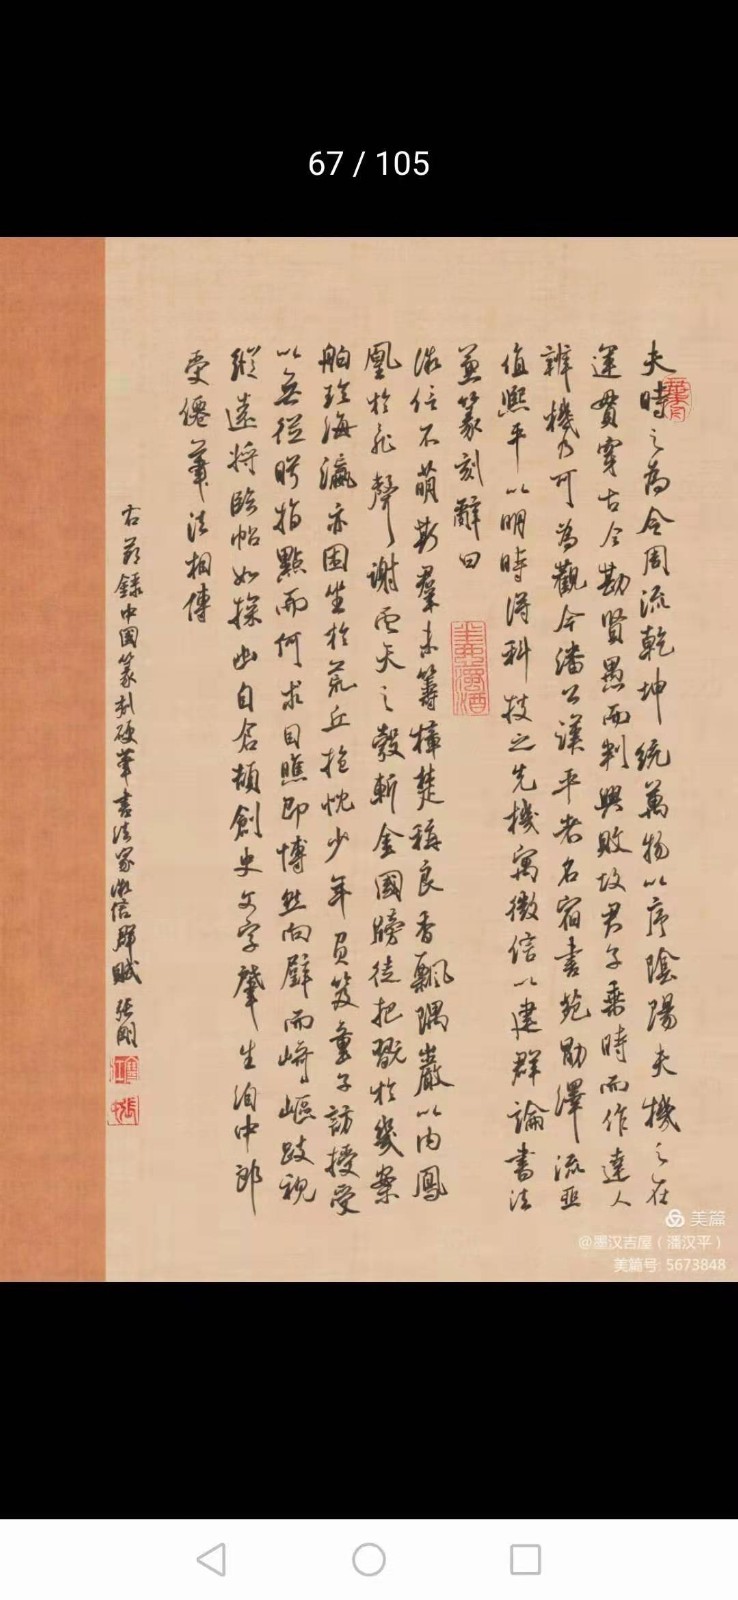 67 / 105
夫時之為令周流乾坤統萬物以序陰陽夫機之在
運貫穿古今勘賢愚而判興敗故君子乘時而作達人
辨機乃可為觀今潘公漢平者名宿書苑勛澤流亞
值熙平以明時得科技之先機寓微信以建群論書法
並篆刻辭曰
微信不萌斯羣未籌樟楚稱良香飄隅巖以内鳳
凰於飛聲謝雲天之斬金國牓徒把翫於幾案
舶珍海瀛亦困坐於荒丘抱忱少年負笈童子訪授受
以無從盱指點而何求目瞧即博然向壁而崎嶇跂視
縱遠將臨帖如探幽自倉頡創史文字肇生洎中郎
受僊筆法相傳
右節錄中國篆刻硬筆書法家微信群賦 張開
美篇
@墨汉吉屋（潘汉平）
美篇号: 5673848